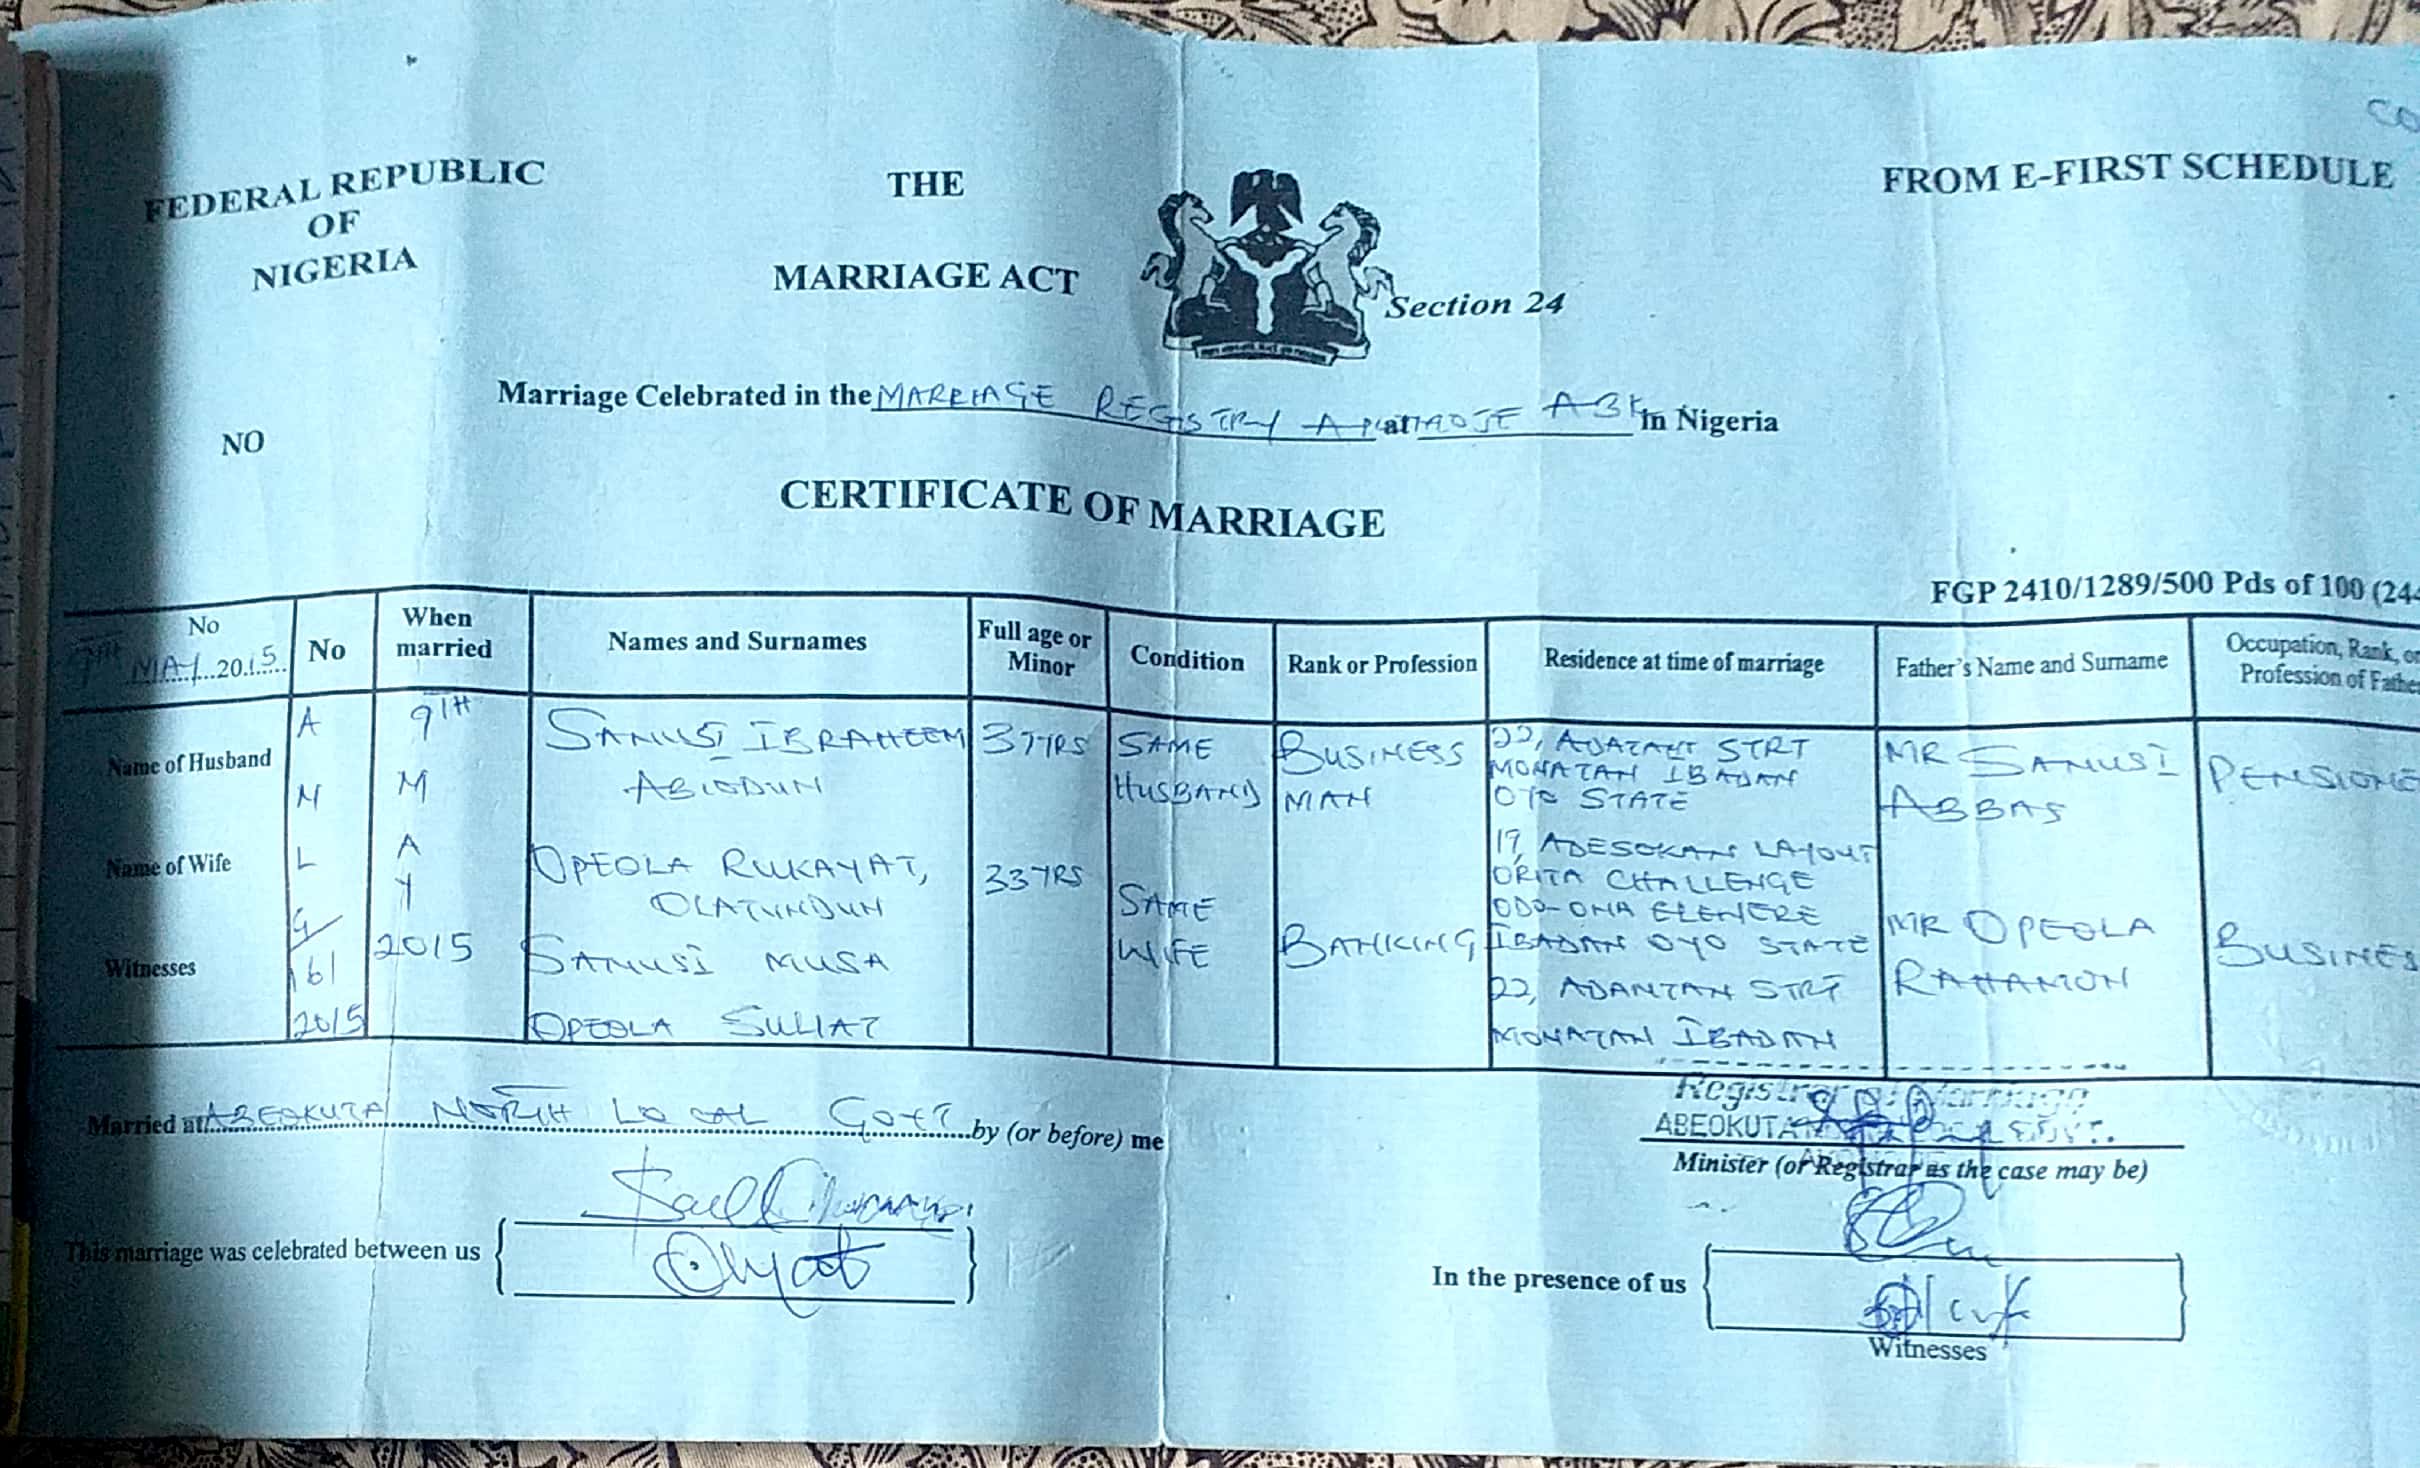 CO
FEDERAL REPUBLIC
OF
NIGERIA
THE
MARRIAGE ACT
Section 24
FROM E-FIRST SCHEDULE
NO
Marriage Celebrated in the MARRIAGE REGISTRY at ABK In Nigeria
CERTIFICATE OF MARRIAGE
FGP 2410/1289/500 Pds of 100 (244
No
9TH MAY 2015
No
When married
Names and Surnames
Full age or Minor
Condition
Rank or Profession
Residence at time of marriage
Father's Name and Surname
Occupation, Rank, or
Profession of Father
Name of Husband
A
N
L
G/
161
2015
9TH
M
A
Y
2015
SANUSI IBRAHEEM
ABIODUN
37YRS
SAME
HUSBAND
BUSINESS
MAN
22, STRT
MONATAN IBADAN
OYO STATE
MR SANUSI
ABBAS
PENSIONE
Name of Wife
OPEOLA RUKAYAT,
OLATUNDUN
33YRS
SAME
WIFE
BANKING
19, ADESOKAN LAYOUT
ORITA CHALLENGE
ODO-ONA ELEWERE
IBADAN OYO STATE
MR OPEOLA
RAHAMON
BUSINES
Witnesses
SANUSI MUSA
OPEOLA SULIAT
22, ADANTAN STRT
MONATAN IBADAN
Married at ABEOKUTA NORTH LOCAL GOVT by (or before) me
Registrar of Marriage
ABEOKUTA GOVT.
Minister (or Registrar as the case may be)
This marriage was celebrated between us
In the presence of us
Witnesses